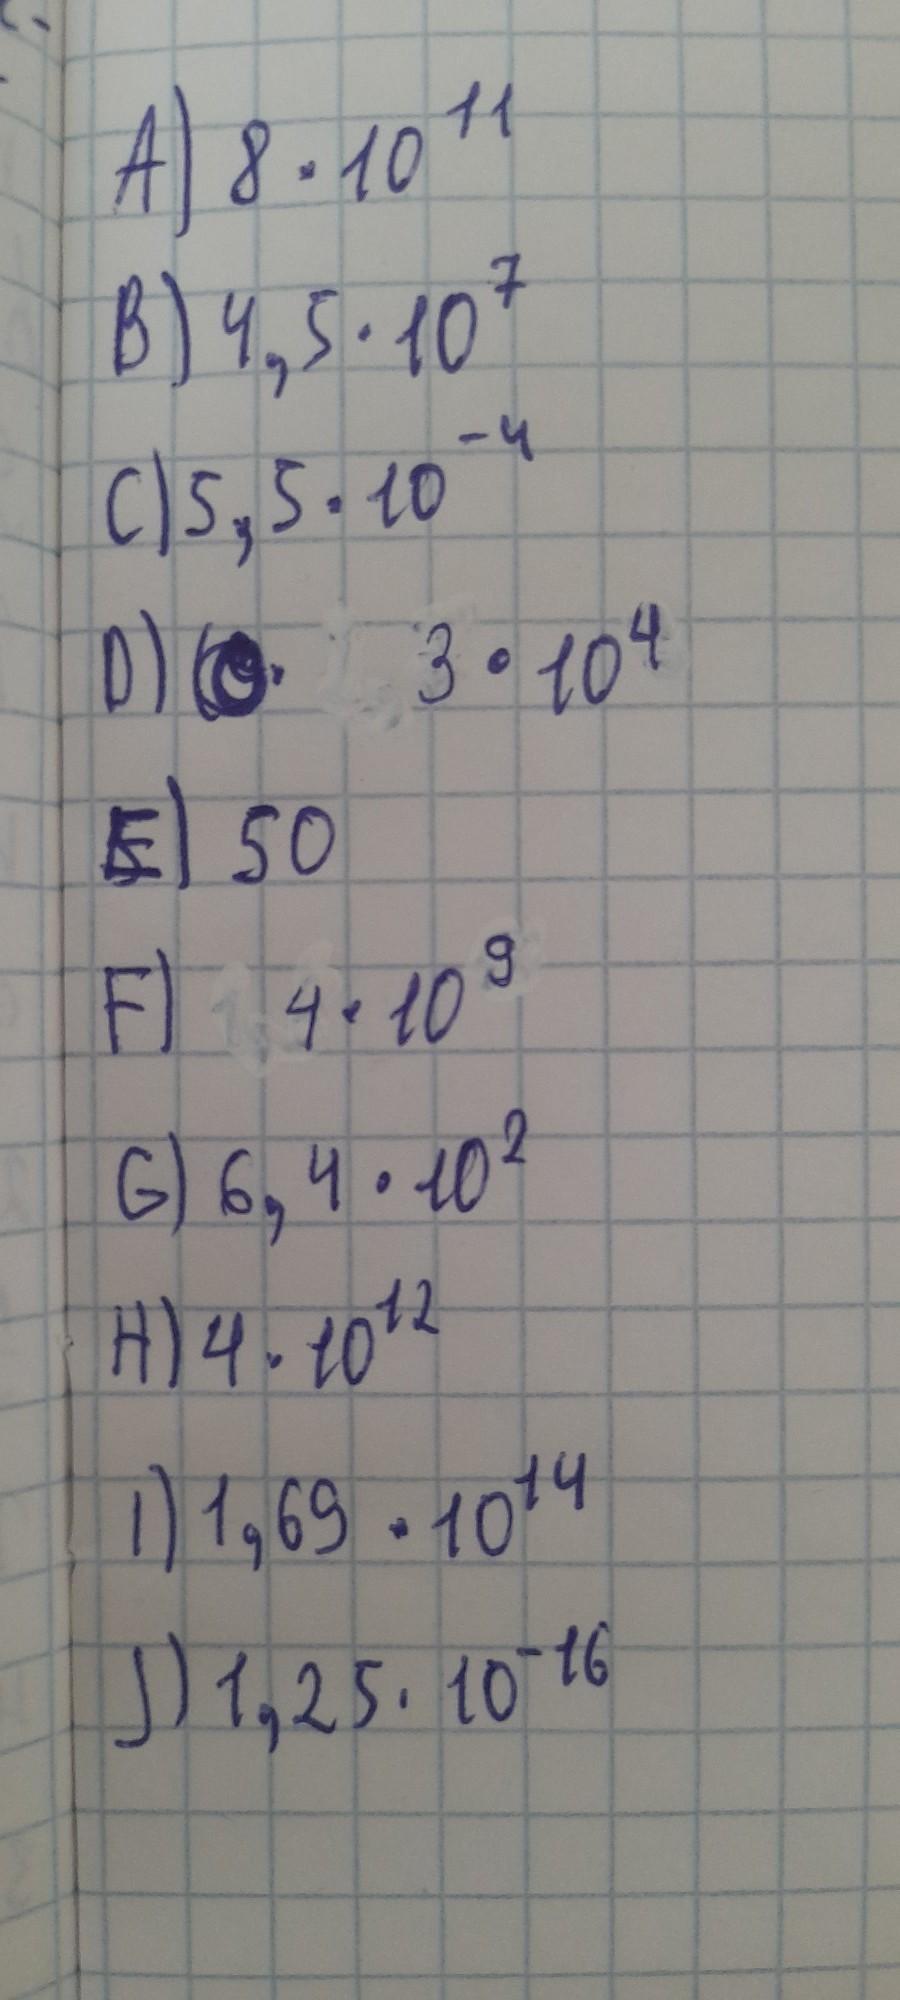 A) 8 · 10¹¹
B) 4,5 · 10⁷
C) 5,5 · 10⁻⁴
D) 3 · 10⁴
E) 50
F) 4 · 10⁹
G) 6,4 · 10²
H) 4 · 10¹²
I) 1,69 · 10¹⁴
J) 1,25 · 10⁻¹⁶